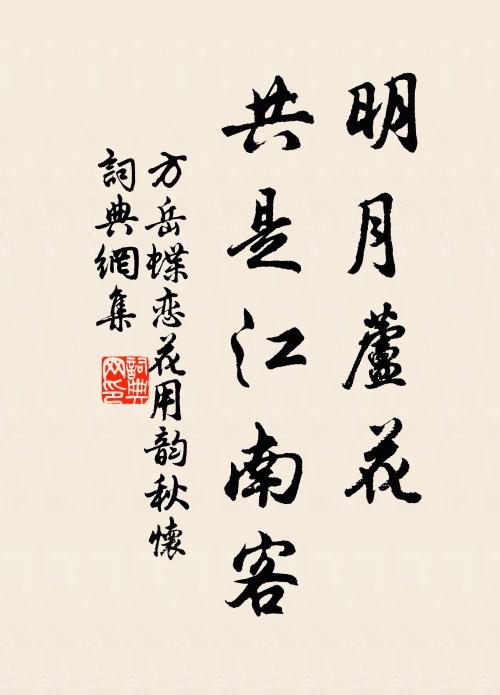 明月蘆花
共是江南客
方岳蝶恋花用韵秋懷
詞典網集
詞典
网印